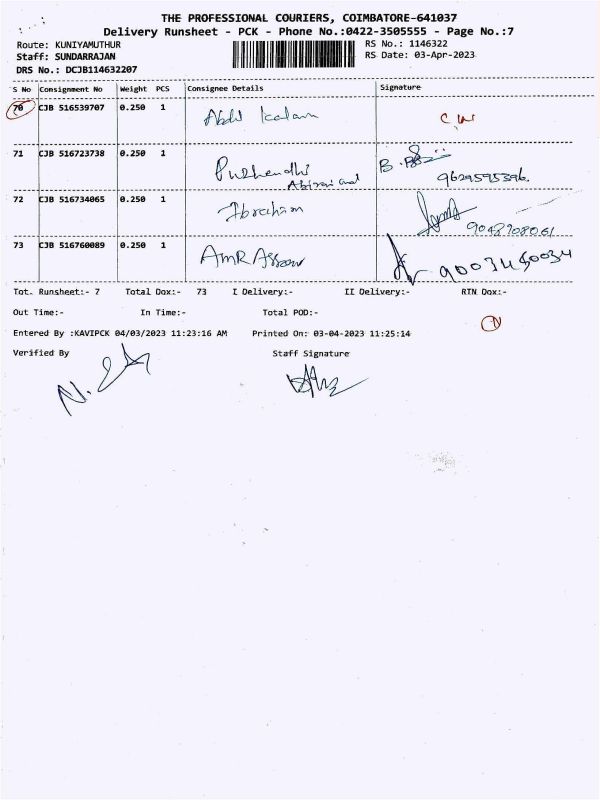 THE PROFESSIONAL COURIERS, COIMBATORE-641037
Delivery Runsheet - PCK - Phone No.:0422-3505555 - Page No.:7
Route: KUNIYAMUTHUR
RS No.: 1146322
Staff: SUNDARRAJAN
RS Date: 03-Apr-2023
DRS No.: DCJB114632207
S No Consignment No Weight PCS Consignee Details Signature
70 CJB 516539707 0.250 1 Abdul kalam
71 CJB 516723738 0.250 1
9629595396
72 CJB 516734065 0.250 1 Ibrahim
9048908061
73 CJB 516760089 0.250 1 AMR
9003450034
Tot. Runsheet:- 7 Total Dox:- 73 I Delivery:- II Delivery:- RTN Dox:-
Out Time:- In Time:- Total POD:-
N
Entered By :KAVIPCK 04/03/2023 11:23:16 AM Printed On: 03-04-2023 11:25:14
Verified By Staff Signature